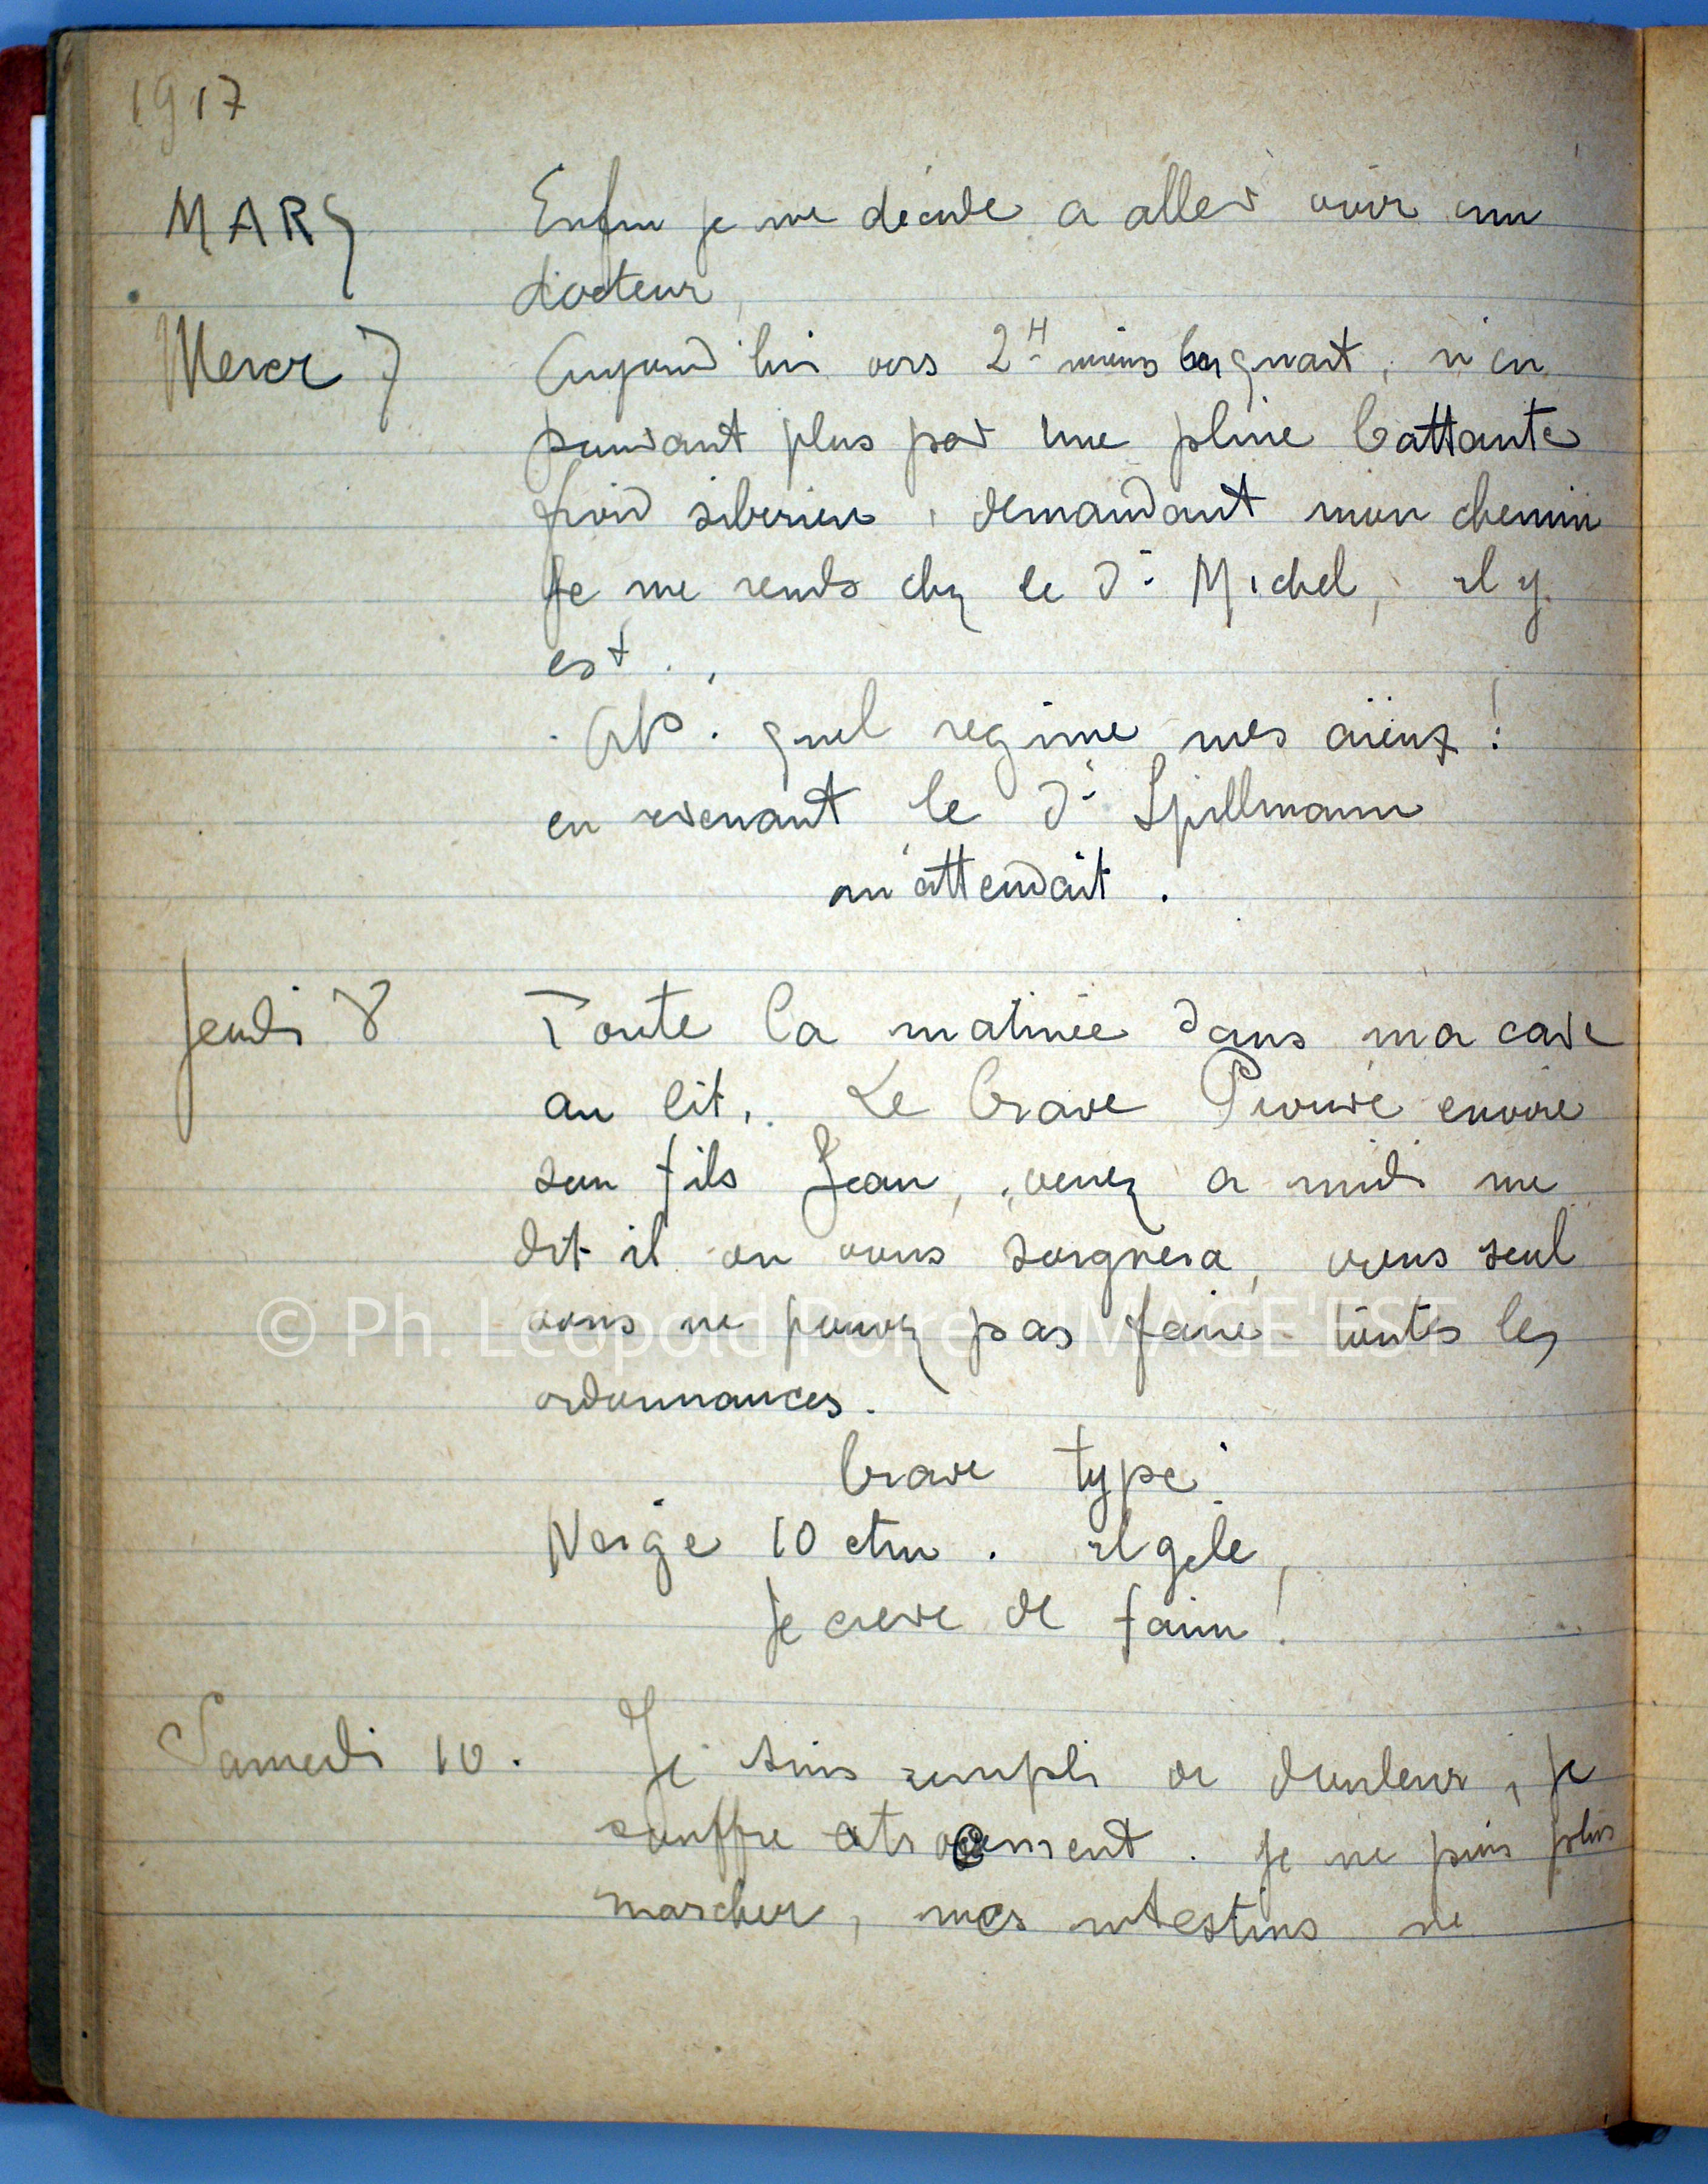 1917
MARS Enfin je me décide a aller voir un
docteur,
Mercr 7 Aujourd'hui vers 2H moins le quart, n'en
pouvant plus par une pluie battante
froid siberien, demandant mon chemin
Je me rends chez le Dr Michel, il y
est.
quel regime mes aïeux !
en revenant le Dr Spillmann
m'attendait.
Jeudi 8 Toute la matinée dans ma cave
au lit. Le brave envoie
son fils Jean, venez a midi me
dit il on vous soignera, vous seul
vous ne pouvez pas faire toutes les
© Ph. Léopold Poiré - IMAGE'EST
ordonnances.
brave type
Neige 10 ctm. il gele,
Je creve de faim !
Samedi 10. Je suis rempli de douleur, je
souffre atrocement. Je ne puis plus
marcher, mes intestins ne